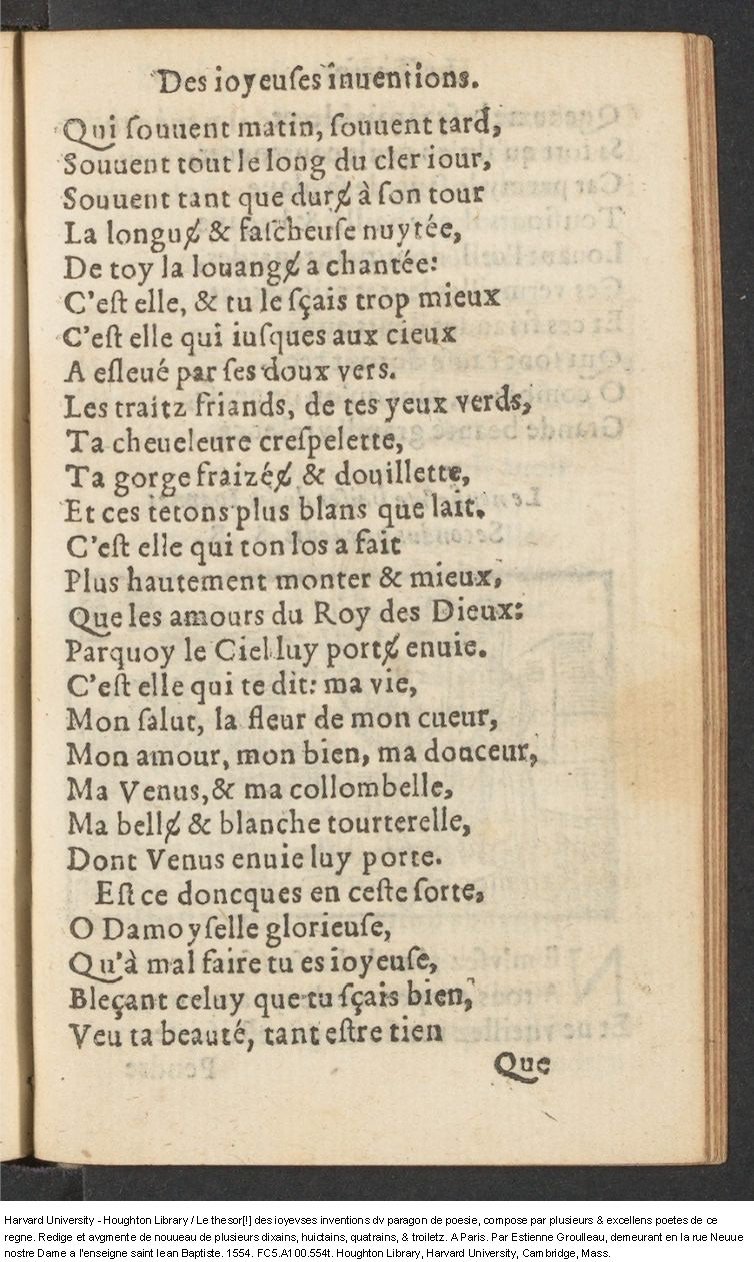 Des ioyeuſes inuentions.
Qui ſouuent matin, ſouuent tard,
Souuent tout le long du cler iour,
Souuent tant que durɇ à ſon tour
La longuɇ & faſcheuſe nuytée,
De toy la louangɇ a chantée:
C'eſt elle, & tu le ſçais trop mieux
C'eſt elle qui iuſques aux cieux
A eſleué par ſes doux vers.
Les traitz friands, de tes yeux verds,
Ta cheueleure creſpelette,
Ta gorge fraizéɇ & douillette,
Et ces tetons plus blans que lait.
C'eſt elle qui ton los a fait
Plus hautement monter & mieux,
Que les amours du Roy des Dieux:
Parquoy le Ciel luy portɇ enuie.
C'eſt elle qui te dit: ma vie,
Mon ſalut, la fleur de mon cueur,
Mon amour, mon bien, ma douceur,
Ma Venus, & ma collombelle,
Ma bellɇ & blanche tourterelle,
Dont Venus enuie luy porte.
Eſt ce doncques en ceſte ſorte,
O Damoyſelle glorieuſe,
Qu'à mal faire tu es ioyeuſe,
Bleçant celuy que tu ſçais bien,
Veu ta beauté, tant eſtre tien
Que
Harvard University - Houghton Library / Le thesor[!] des ioyevses inventions dv paragon de poesie, compose par plusieurs & excellens poetes de ce
regne. Redige et avgmente de nouueau de plusieurs dixains, huictains, quatrains, & troiletz. A Paris. Par Estienne Groulleau, demeurant en la rue Neuue
nostre Dame a l'enseigne saint Iean Baptiste. 1554. FC5.A100.554t. Houghton Library, Harvard University, Cambridge, Mass.